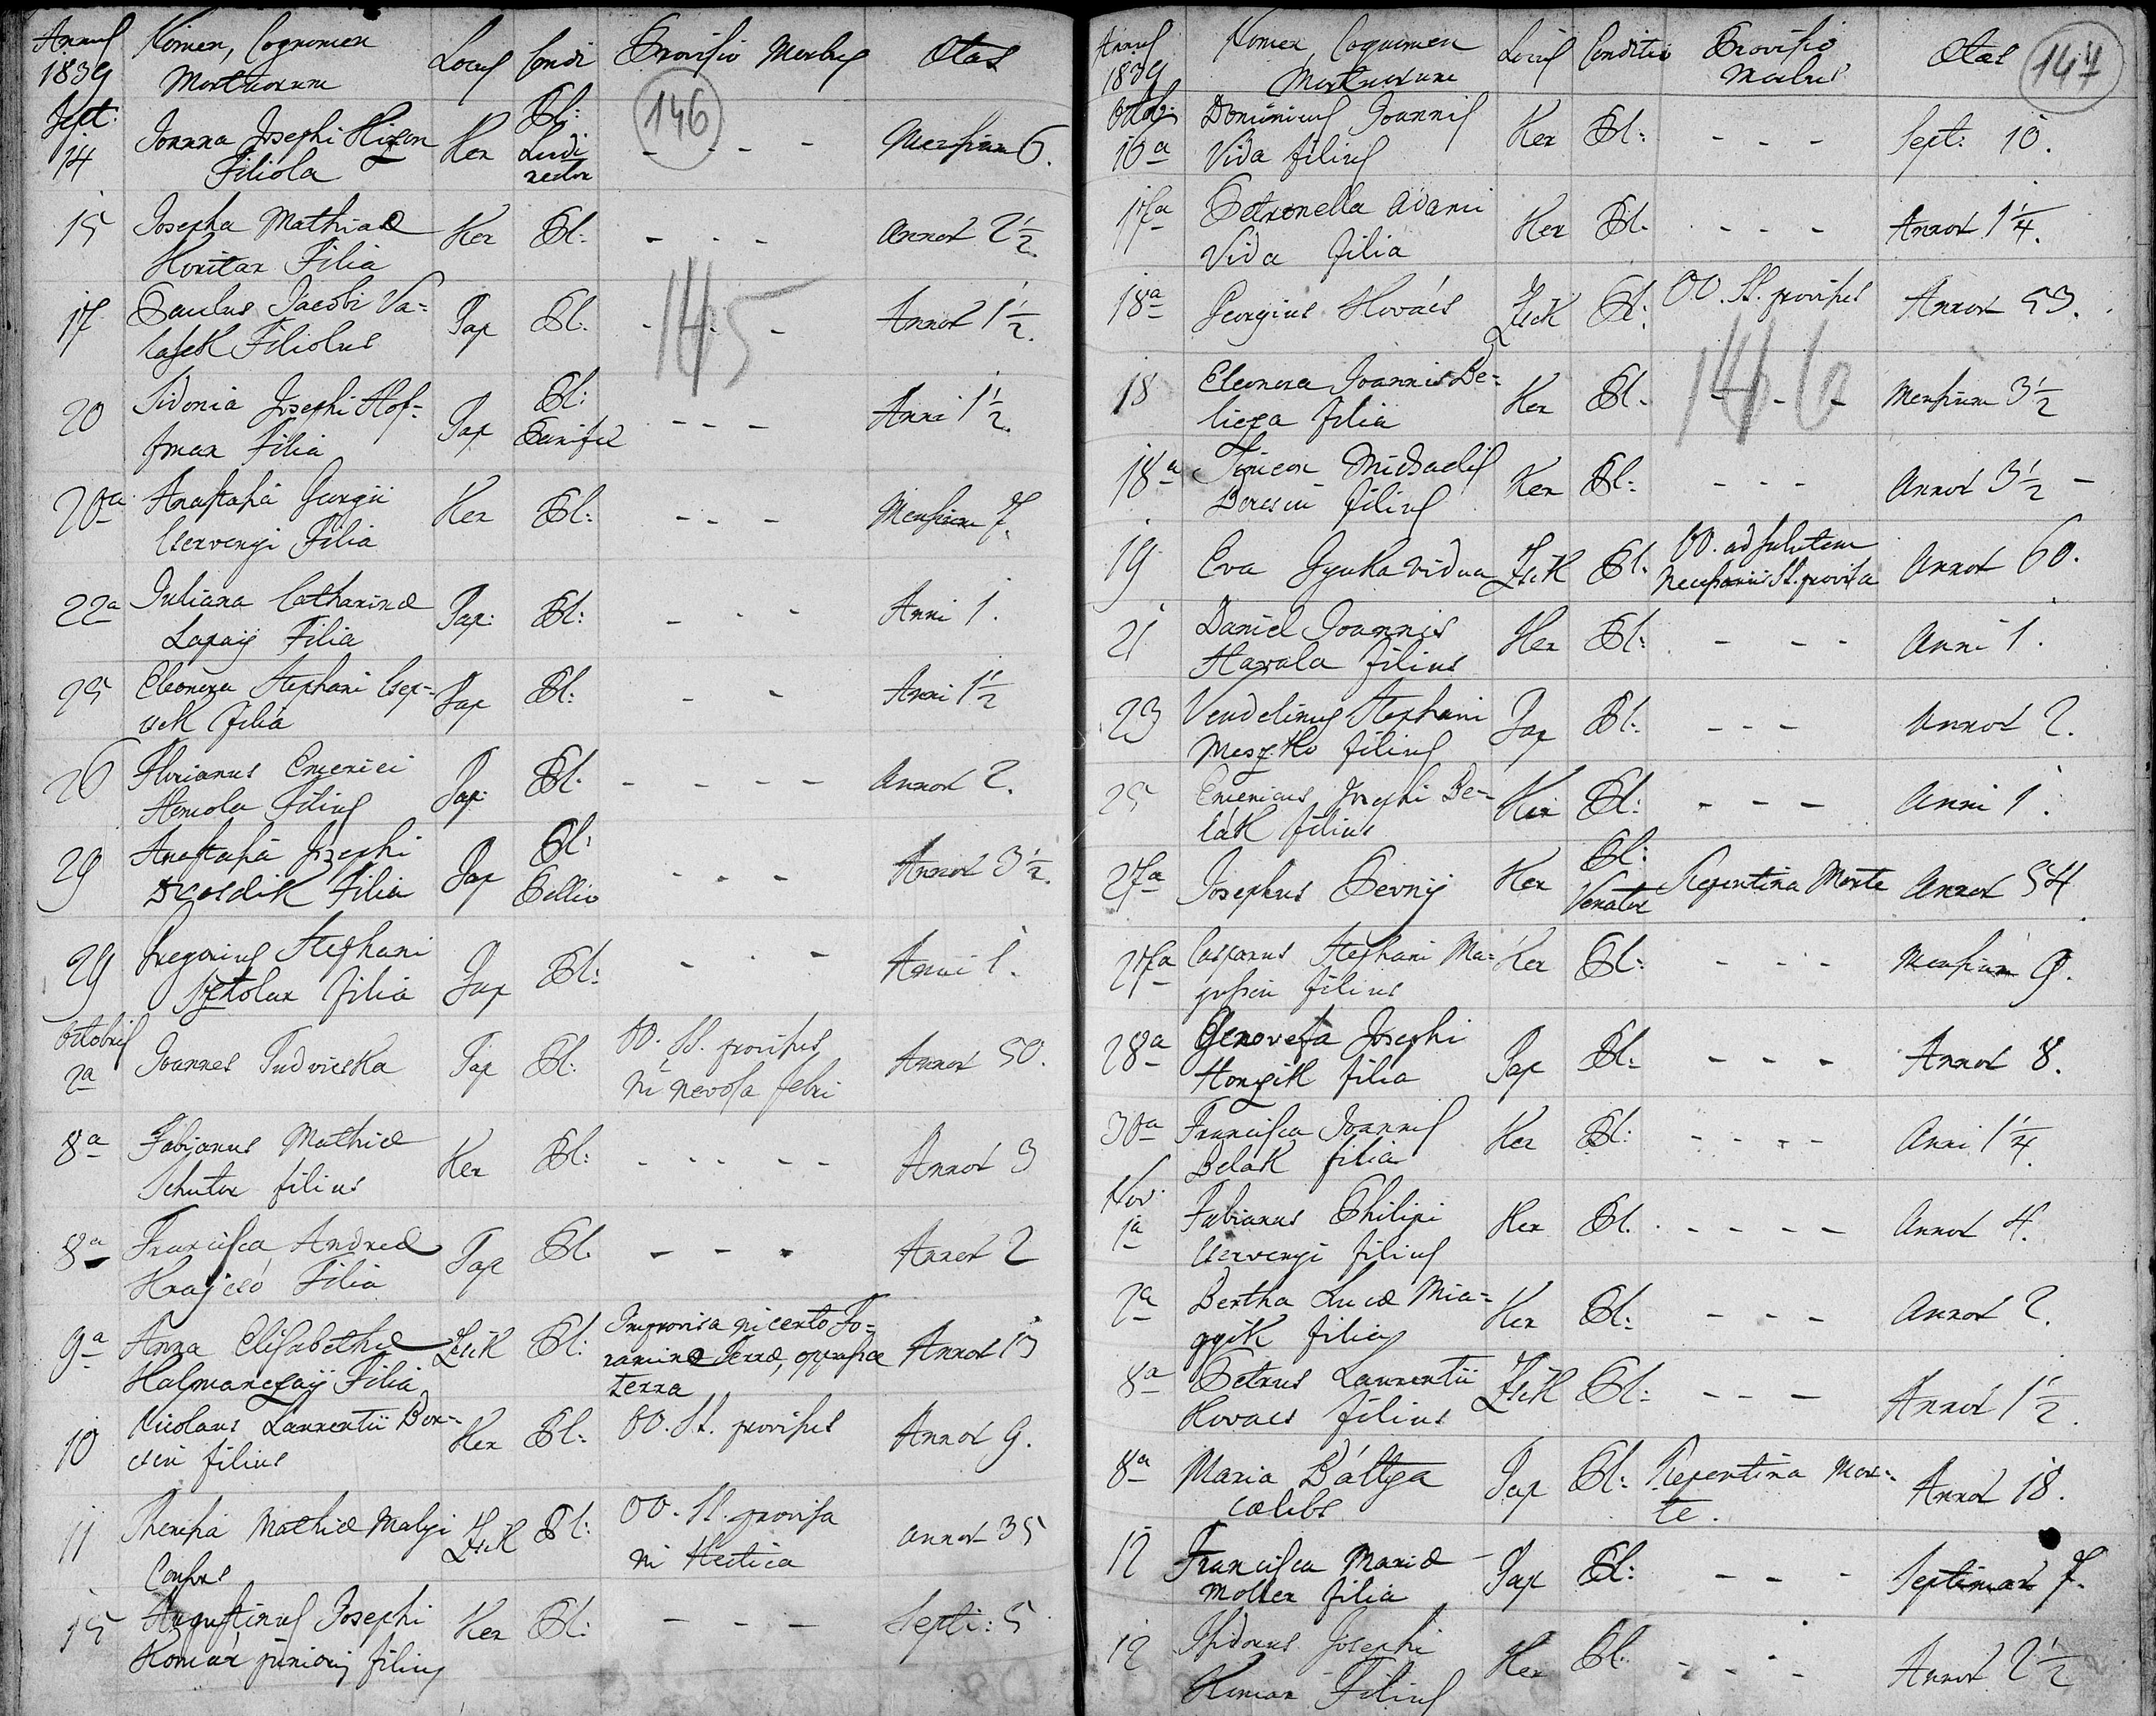 Annus 1839
Nomen, Cognomen Mortuorum
Locus
Condi
Provisio Morbus
Ætas
146
Sept:
14 Joanna Josephi Filiola Ker Pl: Ludi rector - - - Mensium 6.
15 Josepha Mathiæ Horitar Filia Ker Pl: - - - Annor 2 1/2
145
17 Paulus Jacobi Va=
lassek Filiolus Pap Pl: - - - Annor 1 1/2.
20 Sidonia Josephi Hof=
man Filia Pap Pl: - - - Anni 1 1/2.
20a Anastasia Georgii
Cservenyi Filia Ker Pl: - - - Mensium 7.
22a Juliana Catharinæ
Lapaÿ Filia Pap: Pl: - - - Anni 1.
25 Eleonora Stephani Csep=
csek filia Pap Pl: - - Anni 1 1/2
26 Florianus Emerici
Homola Filius Pap: Pl: - - - - Annor 2.
29 Anastasia Josephi
Filia Pap Pl: Pellio - - - Annor 3 1/2.
29 Gregorius Stephani
Sztolar filia Pap Pl: - - - Anni 1.
Octobris
2a Joannes Ludvicska Pap Pl: OO. SS. provisus
in nevosa febri Annor 50.
8a Fabianus Mathiæ
Schutor filius Ker Pl: - - - - - Annor 3
8a Francisca Andreæ
Krajcsó Filia Pap Pl. - - - Annor 2
9a Anna Elisabethæ
Halmanczaÿ Filia Zsik Pl: Improvisa in certo Fo=
ramine Terræ, oppressa
terra Annor 13
10 Nicolaus Laurentii Ber=
csin filius Ker Pl: OO. SS. provisus Annor 9.
11 Theresia Mathiæ Malyi
Consors Zsik Pl: OO. SS. provisa
in Hectica Annor 35
15 Augustinus Josephi
Komár junioris filius Ker Pl: - - - Septi: 5
Annus 1839
Nomen, Cognomen Mortuorum
Locus
Conditio
Provisio Morbus
Ætas
147
Octob:
16a Dominicus Joannis
Vida filius Ker Pl: - - - Sept: 10.
17a Petronella Adami
Vida filia Ker Pl. - - - Annor 1 1/4.
18a Georgius Kovács Zsik Pl: OO. SS. provisus Annor 53.
146
18 Eleonora Joannis Be=
licza filia Ker Pl. - - - Mensium 3 1/2
18a Simeon Michaelis
Bercsin filius Ker Pl: - - - Annor 3 1/2 -
19 Eva Gyuka vidua Zsik Pl. OO. ad salutem
necessariis SS. provisa Annor 60.
21 Daniel Joannis
Havala filius Ker Pl: - - - Anni 1.
23 Vendelinus Stephani
Meszko filius Pap Pl: - - - Annor 2.
25 Emericus Josephi Be=
lák filius Ker Pl: - - - Anni 1.
27a Josephus Pevnÿ Ker Pl: Venator Repentina Morte Annor 54
27a Casparus Stephani Ma=
gussin filius Ker Pl: - - - Mensium 9.
28a Genovefa Josephi
Honzik filia Pap Pl: - - - Annor 8.
30a Francisca Joannis
Belak filia Ker Pl: - - - - Anni 1 1/4.
Nov:
1a Fabianus Philipi
Cservenyi filius Ker Pl. - - - - Annor 4.
2a Bertha Lucæ Mia= Ker Pl: - - - Annor 2.
8a Petrus Laurentii
Kovacs filius Zsik Pl: - - - Annor 1 1/2.
8a Maria Báttya
cælebs Pap Pl: Repentina Mor=
te. Annor 18.
12 Francisca Mariæ
Moller filia Pap Pl: - - - Septiman 7.
12 Isidorus Josephi
Komar Filius Ker Pl: - - - - Annor 2 1/2